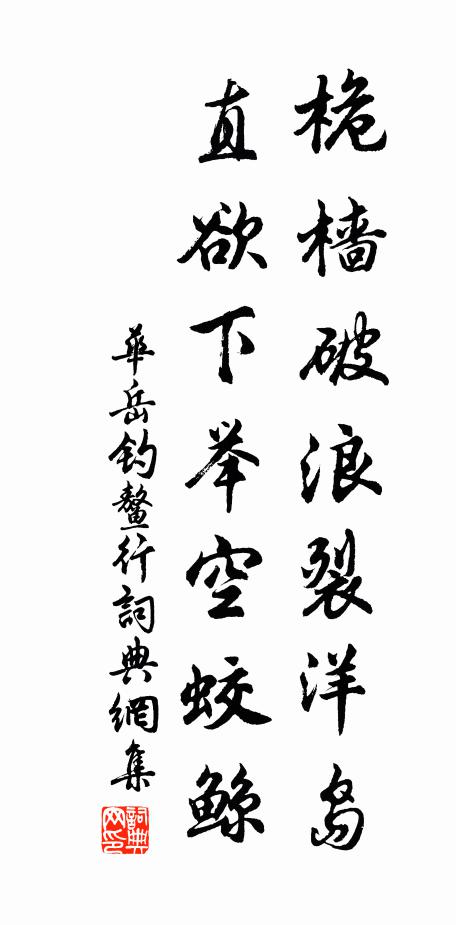 桅檣破浪裂洋島
直欲下举空蛟鲸
華岳钓鰲行詞典網集
詞典網印